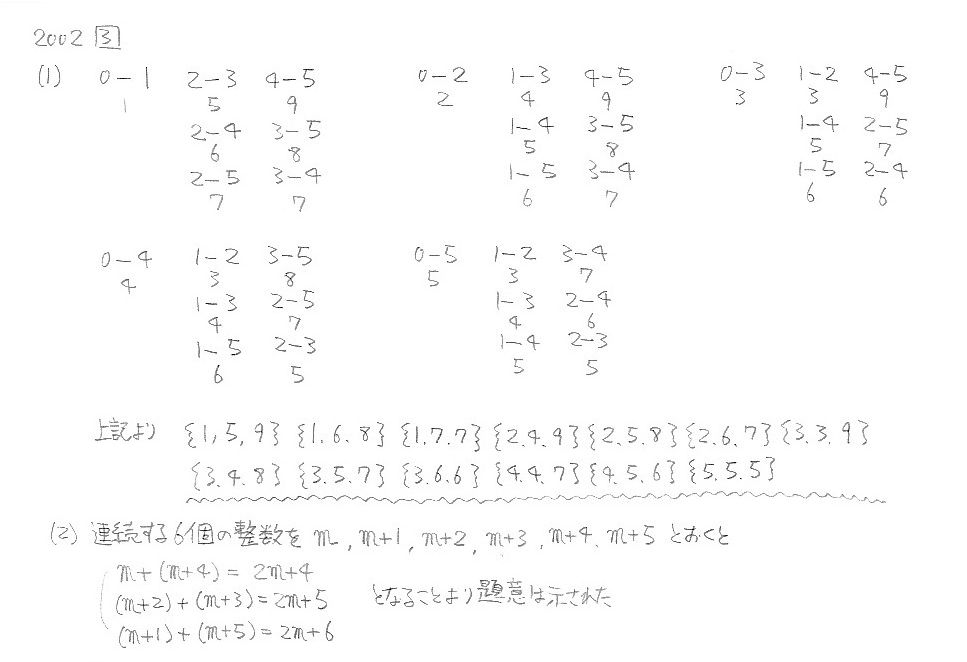 2002 3
(1) 0-1 2-3 4-5 0-2 1-3 4-5 0-3 1-2 4-5
1 5 9 2 4 9 3 3 9
2-4 3-5 1-4 3-5 1-4 2-5
6 8 5 8 5 7
2-5 3-4 1-5 3-4 1-5 2-4
7 7 6 7 6 6
0-4 1-2 3-5 0-5 1-2 3-4
4 3 8 5 3 7
1-3 2-5 1-3 2-4
4 7 4 6
1-5 2-3 1-4 2-3
6 5 5 5
上記より {1,5,9} {1.6.8} {1.7.7} {2.4.9} {2.5.8} {2.6.7} {3.3.9}
{3.4.8} {3.5.7} {3.6.6} {4.4.7} {4.5.6} {5.5.5}
(2) 連続する6個の整数を m, m+1, m+2, m+3, m+4, m+5 とおくと
m+(m+4)=2m+4
(m+2)+(m+3)=2m+5 となることより題意は示された
(m+1)+(m+5)=2m+6